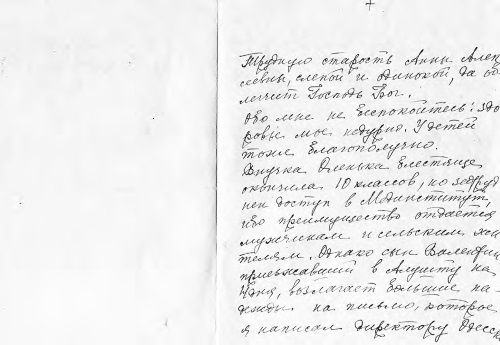 +
Трудную старость Анны Алек
сеевны, слепой и одинокой, да об
легчит Господь Бог.
Обо мне не беспокойтесь: здо
ровье мое недурно. У детей
тоже благополучно.
Внучка Оленька блестяще
окончила 10 классов, но затруд
нен доступ в Мединститут,
ибо преимущество отдается
мужчинам и сельским жи
телям. Однако сын Валентин
приезжавший в Алушту на
дня, возлагает большие на
дежды на письмо, которое
я написал директору Одесск